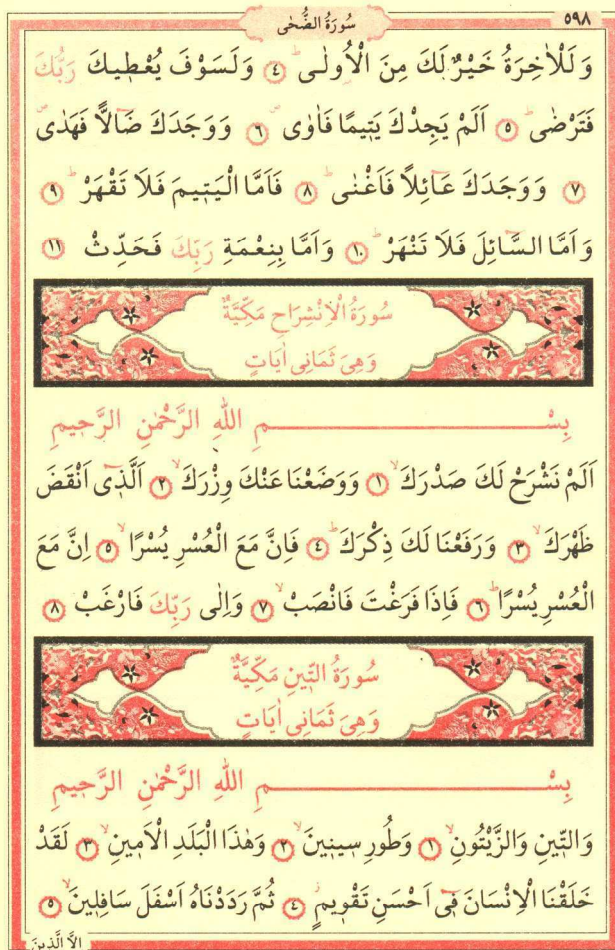 سُورَةُ الضُّحٰى
٥٩٨
وَ لَلْاٰخِرَةُ خَيْرٌ لَكَ مِنَ الْاُولٰى ۜ ٤ وَلَسَوْفَ يُعْطٖيكَ رَبُّكَ
فَتَرْضٰى ۜ ٥ اَلَمْ يَجِدْكَ يَتٖيمًا فَاٰوٰى ۖ ٦ وَوَجَدَكَ ضَٓالًّا فَهَدٰى ۖ
٧ وَوَجَدَكَ عَٓائِلًا فَاَغْنٰى ۜ ٨ فَاَمَّا الْيَتٖيمَ فَلَا تَقْهَرْ ۜ ٩
وَ اَمَّا السَّٓائِلَ فَلَا تَنْهَرْ ۜ ١٠ وَاَمَّا بِنِعْمَةِ رَبِّكَ فَحَدِّثْ ١١
سُورَةُ الْاِنْشِرَاحِ مَكِّيَّةٌ
وَهِىَ ثَمَانِى اٰيَاتٍ
بِسْــــــــــــمِ اللّٰهِ الرَّحْمٰنِ الرَّحٖيمِ
اَلَمْ نَشْرَحْ لَكَ صَدْرَكَ ۙ ١ وَوَضَعْنَا عَنْكَ وِزْرَكَ ۙ ٢ اَلَّذٖٓى اَنْقَضَ
ظَهْرَكَ ۙ ٣ وَرَفَعْنَا لَكَ ذِكْرَكَ ۜ ٤ فَاِنَّ مَعَ الْعُسْرِ يُسْرًا ۙ ٥ اِنَّ مَعَ
الْعُسْرِ يُسْرًا ۜ ٦ فَاِذَا فَرَغْتَ فَانْصَبْ ۙ ٧ وَاِلٰى رَبِّكَ فَارْغَبْ ٨
سُورَةُ التّٖينِ مَكِّيَّةٌ
وَهِىَ ثَمَانِى اٰيَاتٍ
بِسْــــــــــــمِ اللّٰهِ الرَّحْمٰنِ الرَّحٖيمِ
وَالتّٖينِ وَالزَّيْتُونِ ۙ ١ وَطُورِ سٖينٖينَ ۙ ٢ وَهٰذَا الْبَلَدِ الْاَمٖينِ ۙ ٣ لَقَدْ
خَلَقْنَا الْاِنْسَانَ فٖٓى اَحْسَنِ تَقْوٖيمٍ ۘ ٤ ثُمَّ رَدَدْنَاهُ اَسْفَلَ سَافِلٖينَ ۙ ٥
اِلَّا الَّذٖينَ